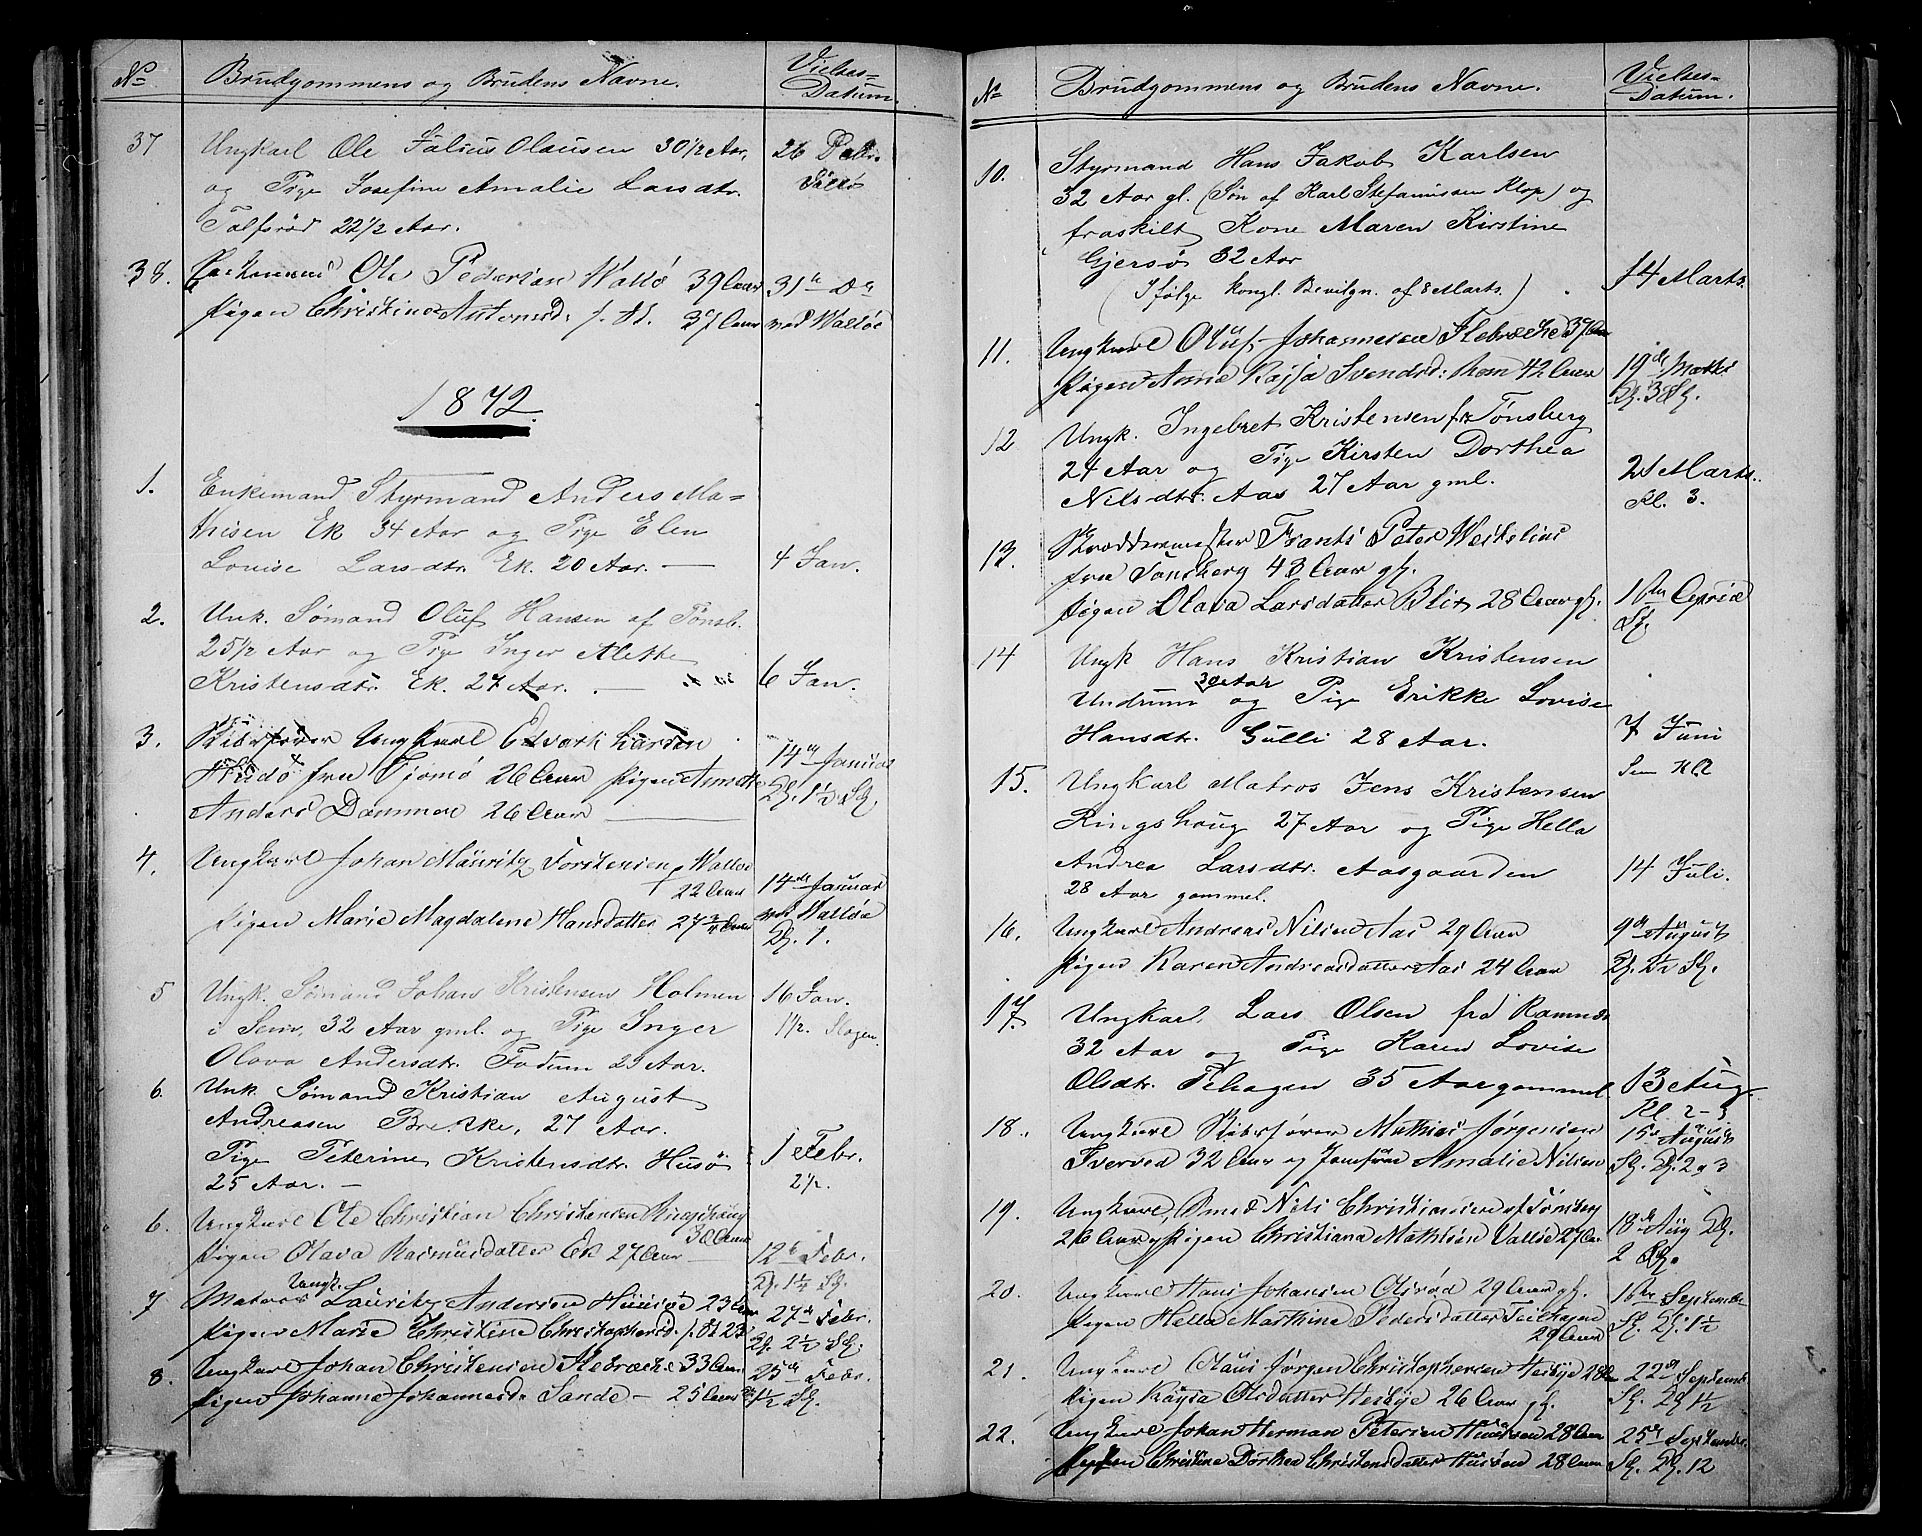 No
Brudgommens og Brudens Navne.
Vielses-
Datum.
37
Ungkarl Ole Julius Olausen 30 1/2 Aar,
og Pige Josefine Amalie Larsdtr.
22 1/2 Aar.
26 Debr.
38.
Ole Pedersen Wallø 39 Aar
Pigen Christine Antonsd: f. St. 37 Aar
31te Ds
ved Walløe
1872.
1.
Enkemand Styrmand Anders Ma-
thisen Ek 34 Aar og Pige Elen
Lovise Larsdtr. Ek. 20 Aar. —
4 Jan.
2.
Unk. Sømand Oluf Hansen af Tønsb.
25 1/2 Aar og Pige Inger Alette
Kristensdtr. Ek. 27 Aar. —
6 Jan.
3.
Ungkarl Edvard Larsen
fra Tjømø 26 Aar Pigen
Anders Dammen 26 Aar
14de Januar
Kl. 1 1/2 Sl.
4.
Ungkarl Johan Mauritz Torstensen Walløe
22 Aar
Pigen Marie Magdalene Hansdatter 27 Aar
14de Januar
ved Walløe
Kl. 1.
5
Ungk. Sømand Johan Kristensen Holmen
i Sem, 32 Aar gml. og Pige Inger
Olava Andersdtr. Fodum 25 Aar.
16 Jan.
1 1/2. Slagen.
6.
Unk. Sømand Kristian August
Andreasen Brekke, 27 Aar.
Pige Peterine Kristensdtr. Husø
25 Aar. —
1 Febr.
2 1/2.
6.
Ungkarl Ole Christian Christensen Ringshaug
30 Aar
Pigen Olava Rasmusdatter Ek 27 Aar
12te Febr.
Kl. 1 1/2 Sl.
7
Ungk.
Matros Lauritz Andersen Husøe 23 Aar
Pigen Marie Christine Christophersd. f. St 23
27de Febr.
Kl. 2 1/2 Sl.
8.
Ungkarl Johan Christensen Flebræche 33 Aar
Pigen Johanne Johannesd. Sande — 25 Aar
25de Febr.
1 1/2 Sl.
No
Brudgommens og Brudens Navne.
Vielses-
Datum.
10.
Styrmand Hans Jakob Karlsen
32 Aar gl. (Søn af Karl Stefanussen Klop) og
fraskilt Kone Maren Kirstine
Gjersø 32 Aar
(Ifølge kongl. Bevilgn. af 8 Marts.)
14 Marts.
11.
Ungkarl Oluf Johannesen Flebræche 37 Aar
Pigen Anne Kajsa Svendsd: Rom 42 Aar
19de Marts
Kl. 3 Sl.
12
Ungk. Ingebret Kristensen fr. Tønsberg
24 Aar og Pige Kirsten Dorthea
Nilsdtr. Aas 27 Aar gml.
21 Marts.
Kl. 3.
13.
Skræddermester Frants Peter
fra Tønsberg 43 Aar gl.
Pigen Olava Larsdatter 28 Aar gl.
1ste April
Sl.
14
Ungk Hans Kristian Kristensen
30 Aar
Undrum og Pige Erikke Lovise
Hansdtr. Gulli 28 Aar.
7 Juni
Sem
15.
Ungkarl Matros Jens Kristensen
Ringshoug 27 Aar og Pige Hella
Andrea Larsdtr. Aasgaarden
28 Aar gammel.
14 Juli.
16.
Ungkarl Andreas Nilsen Aas 29 Aar
Pigen Karen Andreasdatter Aas 24 Aar
9de August
Kl. 2 1/2 Sl.
17.
Ungkarl Lars Olsen fra Ramnes
32 Aar og Pige Karen Lovise
Olsdtr. Fehagen 35 Aar gammel
13 Aug.
Kl. 2–3
18.
Ungkarl Skibsfører Mathias Jørgensen
32 Aar og Jomfrue Amalie Nilsen
15de August
Sl. Kl. 2 a 3
19.
Ungkarl, Smed Nils Christiansen af Tønsberg
26 Aar, Pigen Christiana Mathisen Valløe 27 Aar
18de Aug Kl.
2 Sl.
20.
Ungkarl Hans Johansen Olsrød 29 Aar gl.
Pigen Hella Mathine Pedersdatter Feehagen
29 Aar
1ste September
Sl. Kl. 1 1/2
21.
Ungkarl Olaus Jørgen Christophersen Hesbye 28 Aar
Pigen Kaysa Olsdatter Hesbye 26 Aar gl.
22de Septemb.
Sl. Kl 1 1/2
22.
Ungkarl Johan Herman Petersen Husøen 28 Aar
Pigen Christine Dorthea Christensdatter Husøen 28 Aar
25de September
Sl. Kl. 12